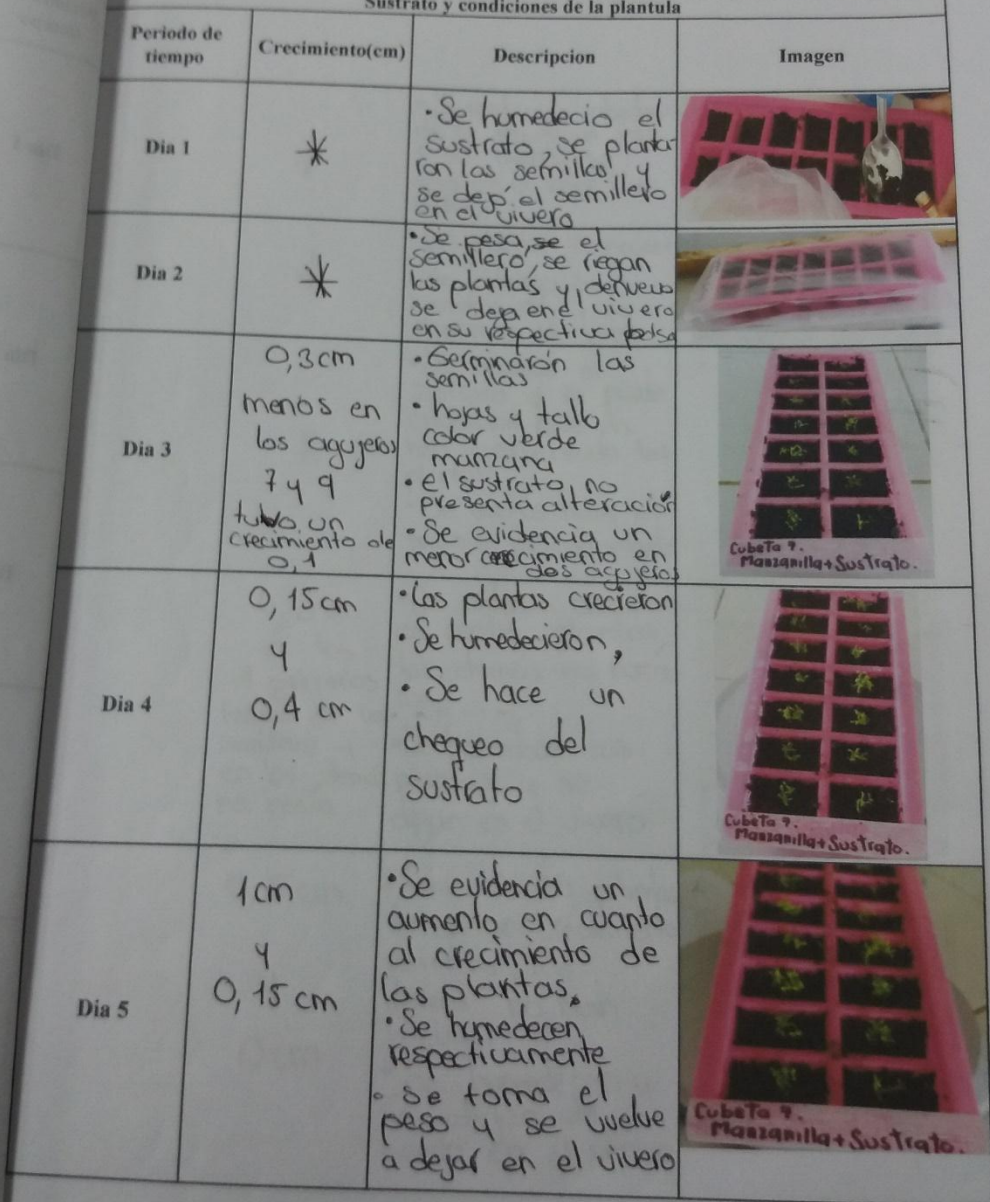 Sustrato y condiciones de la plantula
Periodo de
tiempo
Crecimiento(cm)
Descripcion
Imagen
Dia 1
·Se humedecio el
sustrato, se planta
ron las semillas y
se dejo el semillero
en el vivero
Dia 2
·Se pesa, se el
semillero, se riegan
las plantas y denuevo
se deja en el vivero
en su respectiva bolsa
Dia 3
0,3cm
menos en
los agujeros
7 y 9
tuvo un
crecimiento de
0,1
·Germinarón las
semillas
·hojas y tallo
color verde
manzana
·el sustrato no
presenta alteración
·Se evidencia un
menor crecimiento en
dos agujeros
Cubeta 9.
Manzanilla+Sustrato.
Dia 4
0,15cm
y
0,4 cm
·Las plantas crecieron
·Se humedecieron,
·Se hace un
chequeo del
sustrato
Cubeta 9.
Manzanilla+Sustrato.
Dia 5
1cm
y
0,15cm
·Se evidencia un
aumento en cuanto
al crecimiento de
las plantas.
·Se humedecen
respectivamente
·se toma el
peso y se vuelve
a dejar en el vivero
Cubeta 9.
Manzanilla+Sustrato.